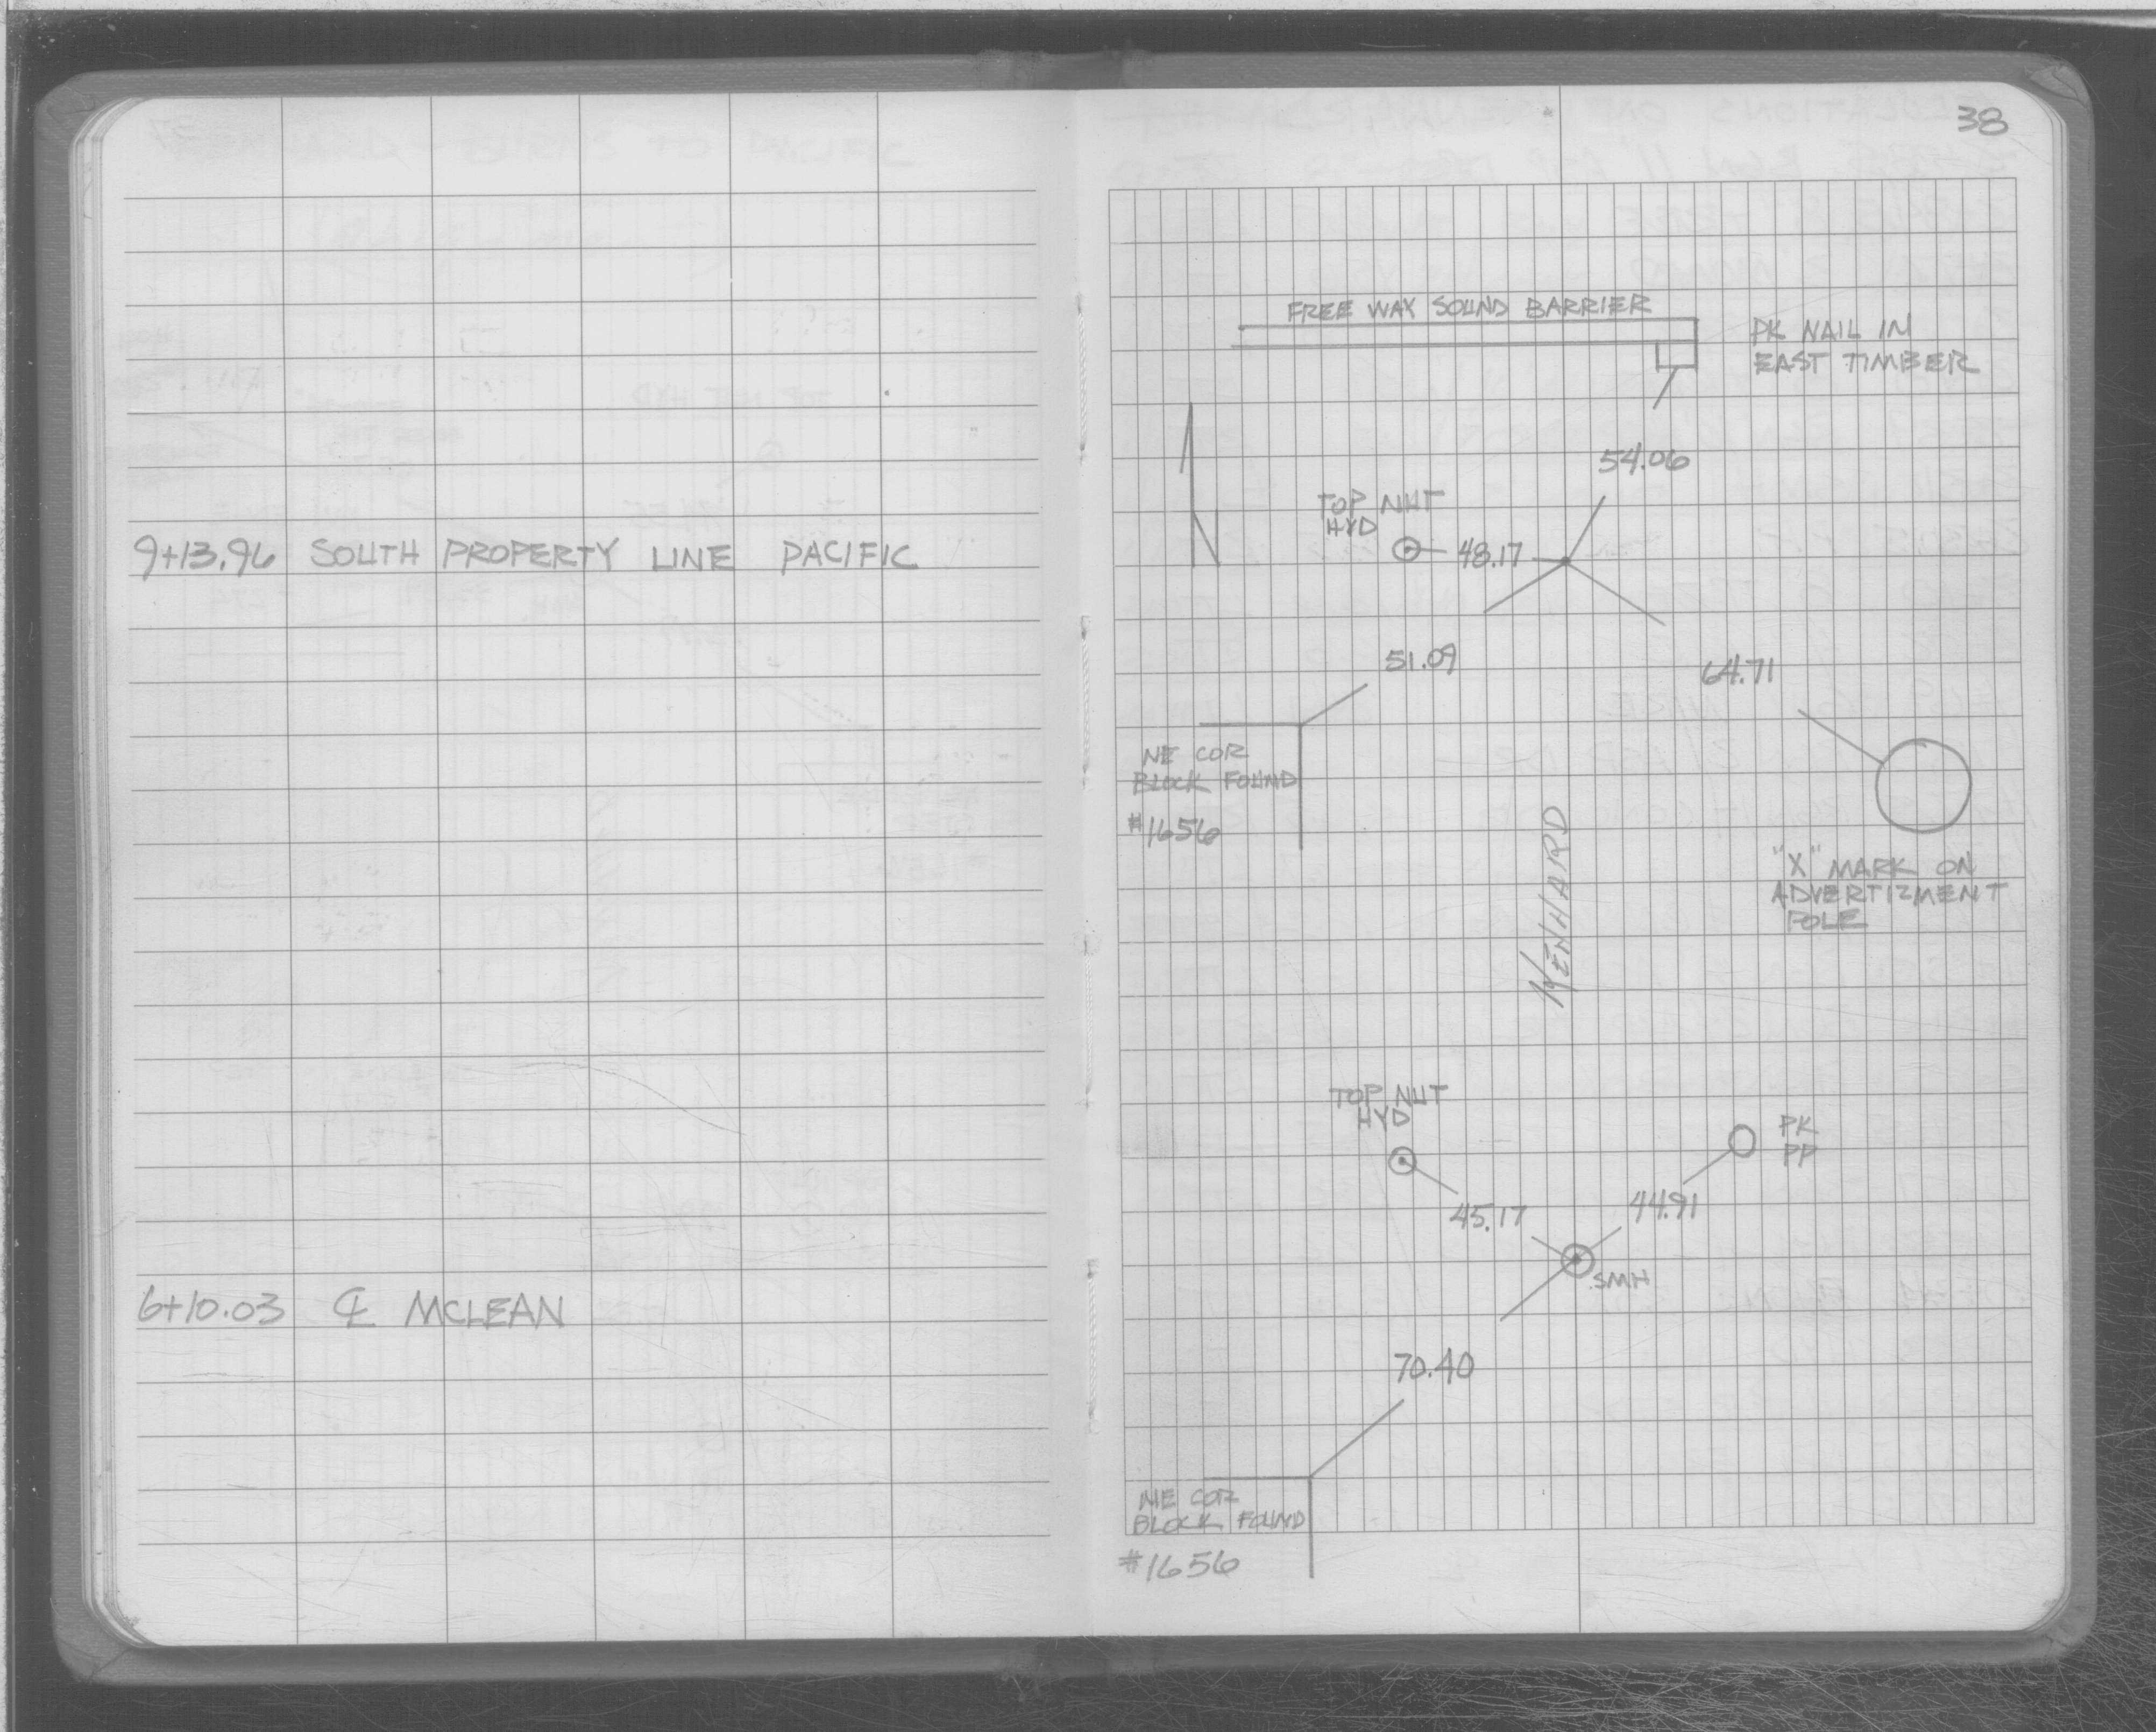 38
9+13.96 SOUTH PROPERTY LINE PACIFIC
6+10.03 ℄ MCLEAN
FREE WAY SOUND BARRIER
PK NAIL IN
EAST TIMBER
54.06
N
TOP NUT
HYD
48.17
51.09
64.71
NE COR
BLOCK FOUND
#1656
"X" MARK ON
ADVERTIZMENT
POLE
TOP NUT
HYD
PK
PP
45.17
44.91
SMH
70.40
NE COR
BLOCK FOUND
#1656